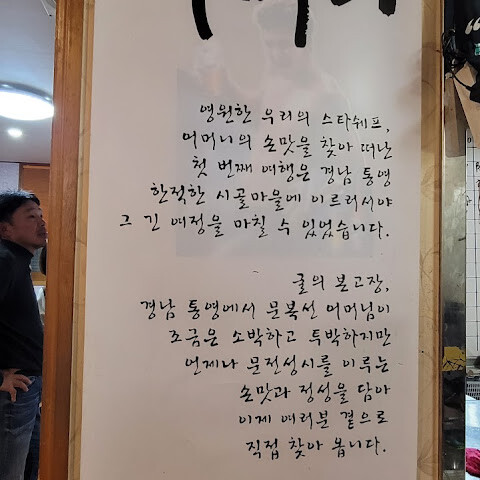 영원한 우리의 스타쉐프,
어머니의 손맛을 찾아 떠난
첫 번째 여행은 경남 통영
한적한 시골마을에 이르러서야
그 긴 여정을 마칠 수 있었습니다.
굴의 본고장,
경남 통영에서 문복선 어머님이
조금은 소박하고 투박하지만
언제나 문전성시를 이루는
손맛과 정성을 담아
이제 여러분 곁으로
직접 찾아 봅니다.